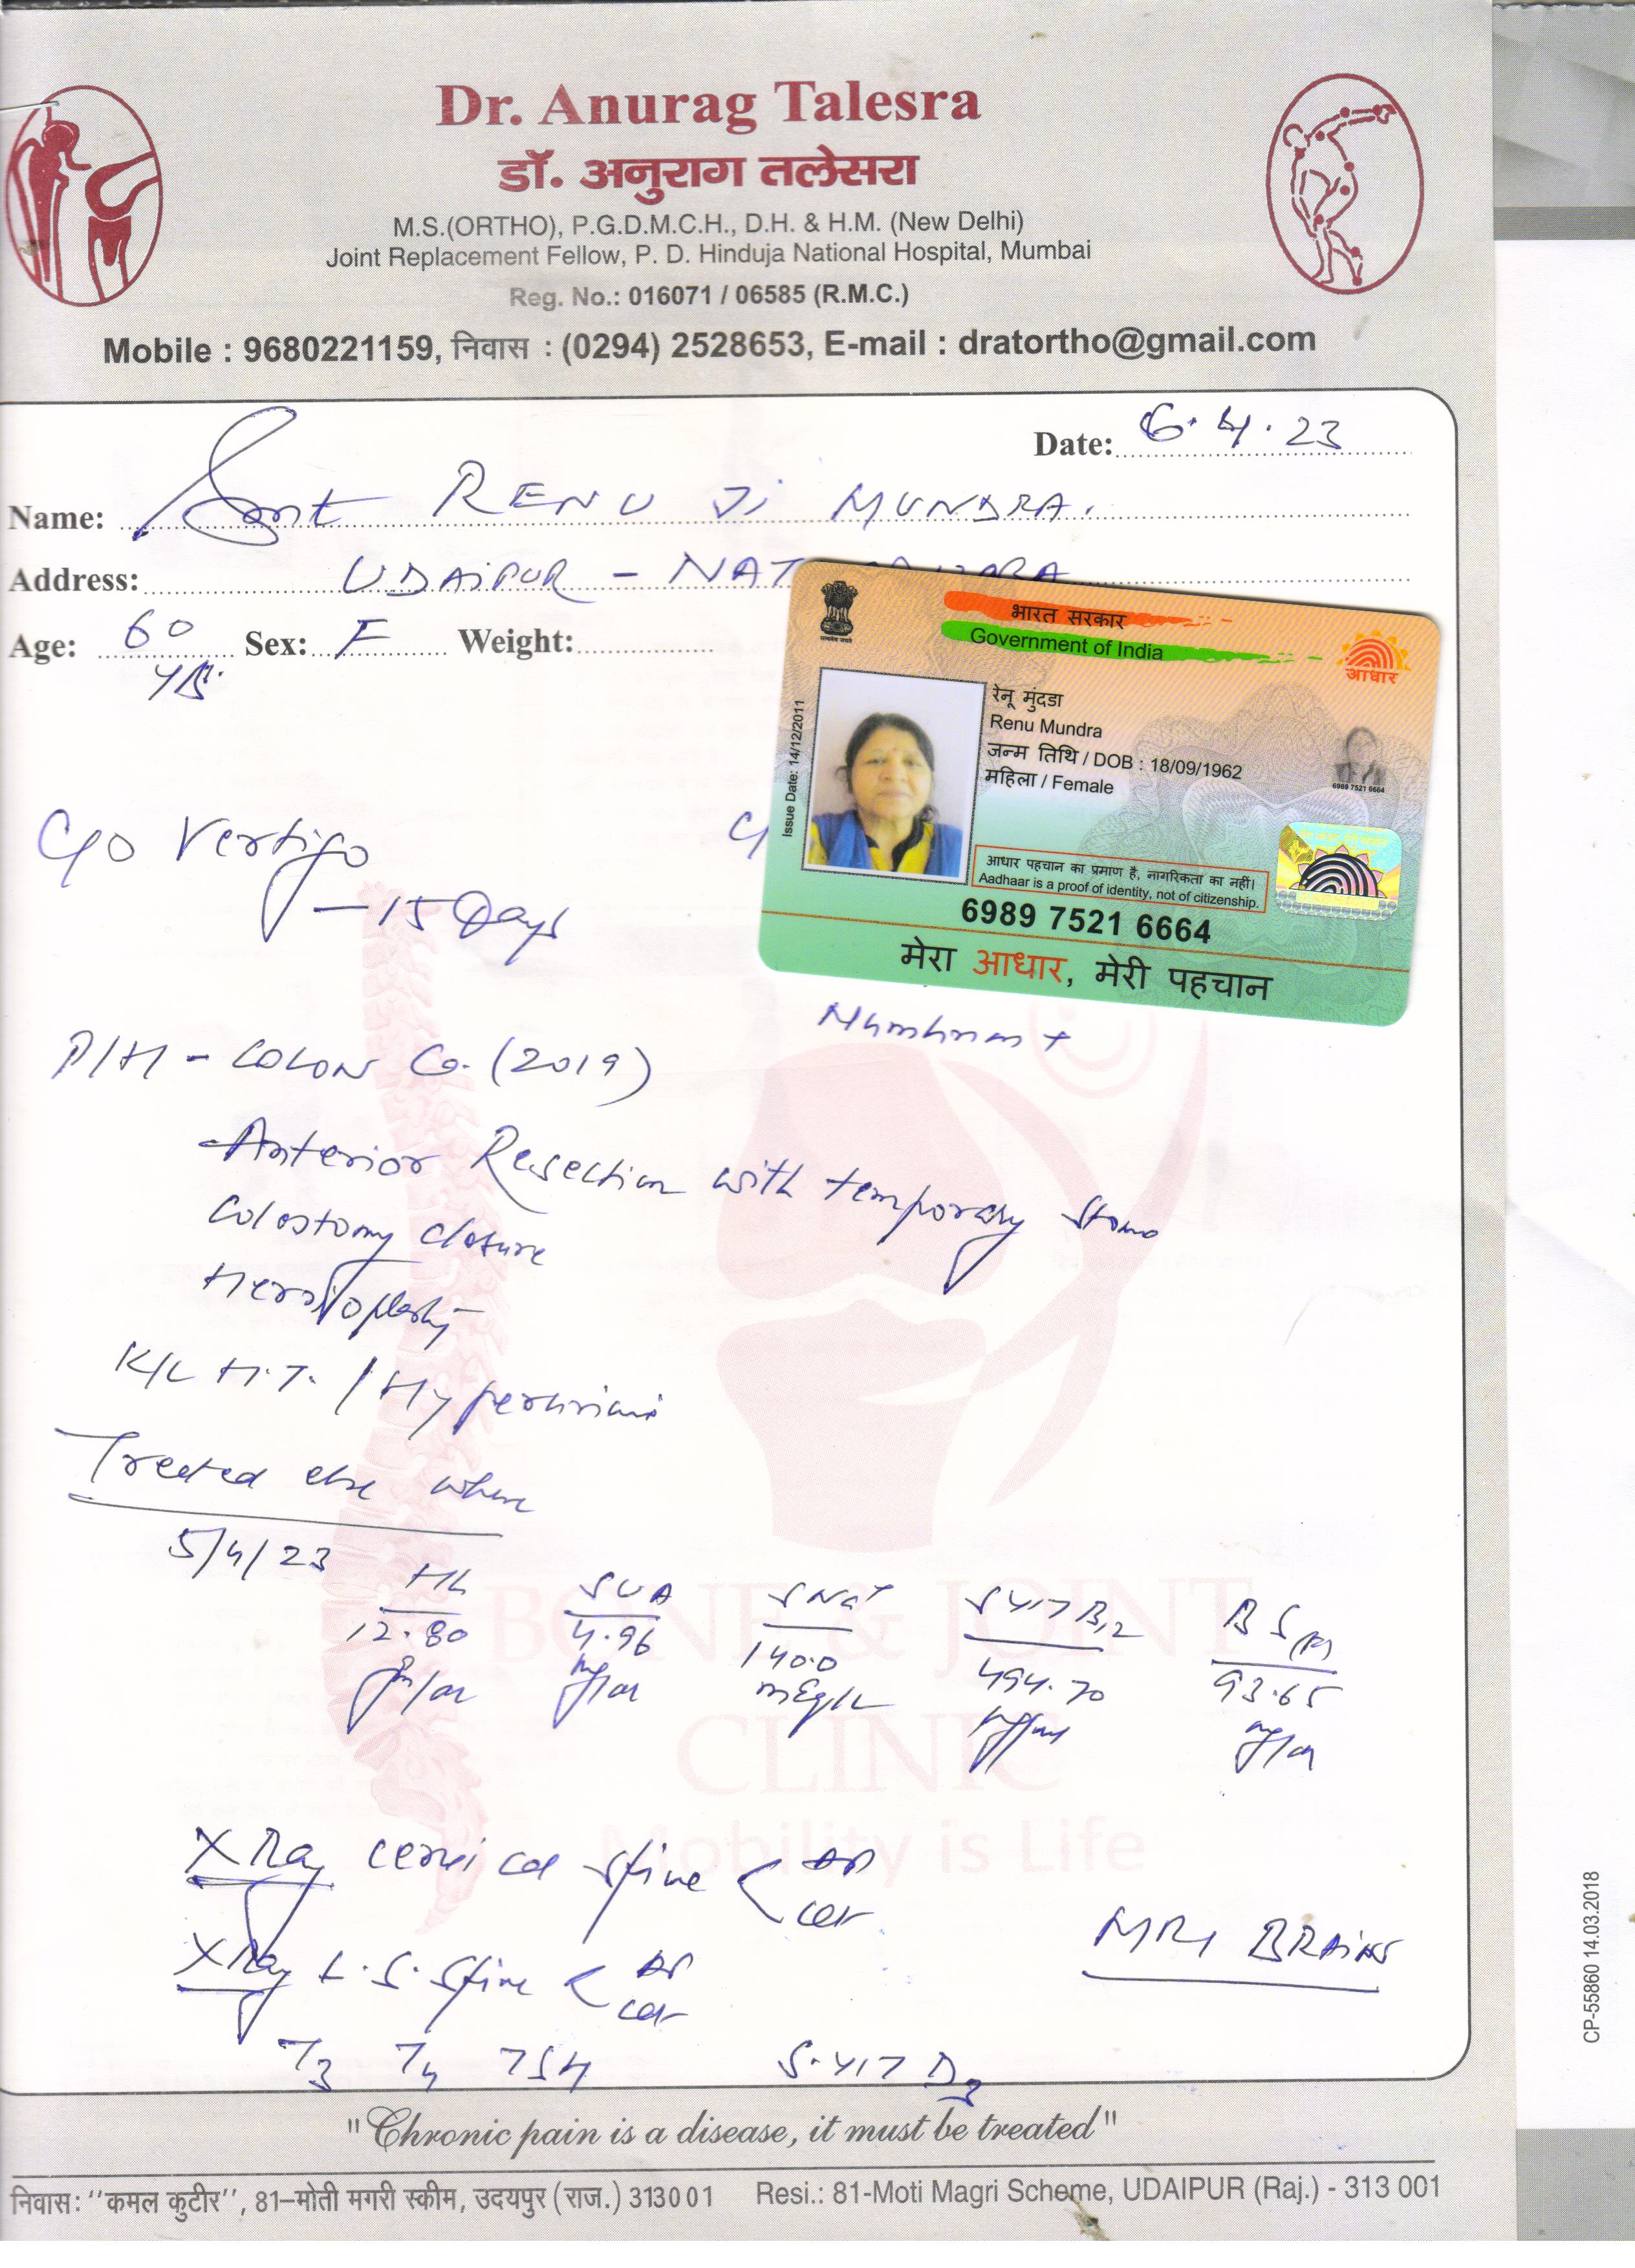 Dr. Anurag Talesra
डॉ. अनुराग तलेसरा
M.S.(ORTHO), P.G.D.M.C.H., D.H. & H.M. (New Delhi)
Joint Replacement Fellow, P. D. Hinduja National Hospital, Mumbai
Reg. No.: 016071 / 06585 (R.M.C.)
Mobile : 9680221159, निवास : (0294) 2528653, E-mail : dratortho@gmail.com
Date: 6.4.23
Name: Smt RENU Ji MUNDRA.
Address: UDAIPUR -
Age: 60 Sex: F Weight:
भारत सरकार
Government of India
आधार
Issue Date: 14/12/2011
रेनू मुंदडा
Renu Mundra
जन्म तिथि / DOB : 18/09/1962
महिला / Female
6989 7521 6664
आधार पहचान का प्रमाण है, नागरिकता का नहीं।
Aadhaar is a proof of identity, not of citizenship.
6989 7521 6664
मेरा आधार, मेरी पहचान
C/O Vertigo
- 15 Days
P/H - COLON Ca. (2019)
Anterior Resection with temporary Stoma
Colostomy closure
Hernioplasty
K/C H.T. /
Treated else where
5/4/23
Hb SUA SNa+ S VIT B12 BS(R)
12.80 4.96 140.0 494.70 93.65
mEq/L
X Ray cervical spine < AP
X Ray L.S. Spine < AP
MRI BRAIN
T3 T4 TSH S.VIT D3
BONE & JOINT
CLINIC
Mobility is Life
"Chronic pain is a disease, it must be treated"
निवास: ''कमल कुटीर'', 81–मोती मगरी स्कीम, उदयपुर (राज.) 313001 Resi.: 81-Moti Magri Scheme, UDAIPUR (Raj.) - 313 001
CP-55860 14.03.2018